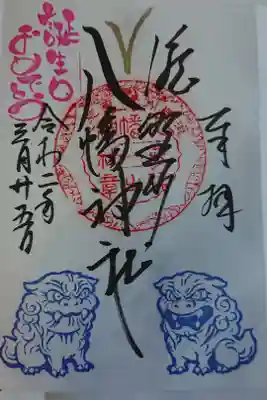 奉拝
滝野川
八幡神社
令和二年
三月廿五日
誕生日
おめでとう